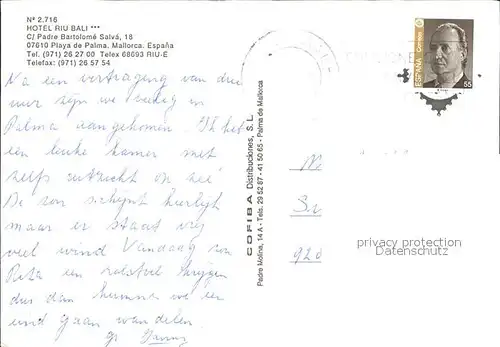 Nº 2.716
HOTEL RIU BALI ***
C/ Padre Bartolomé Salvá, 18
07610 Playa de Palma. Mallorca. España
Tel. (971) 26 27 00 Telex 68693 RIU-E
Telefax: (971) 26 57 54
Na een vertraging van drie
uur zijn we veilig in
Palma aangekomen. Ik heb
een leuke kamer met
zelfs uitzicht op zee!
De zon schijnt heerlijk
maar er staat vrij
veel wind Vandaag zou
Rita een rolstoel krijgen
dus dan kunnen we er
eind gaan wandelen.
gr
COFIBA Distribuciones, S.L.
Padre Molina, 14 A - Tels. 29 52 87 - 41 50 65 - Palma de Mallorca
ESPAÑA Correos
55
920
privacy protection
Datenschutz